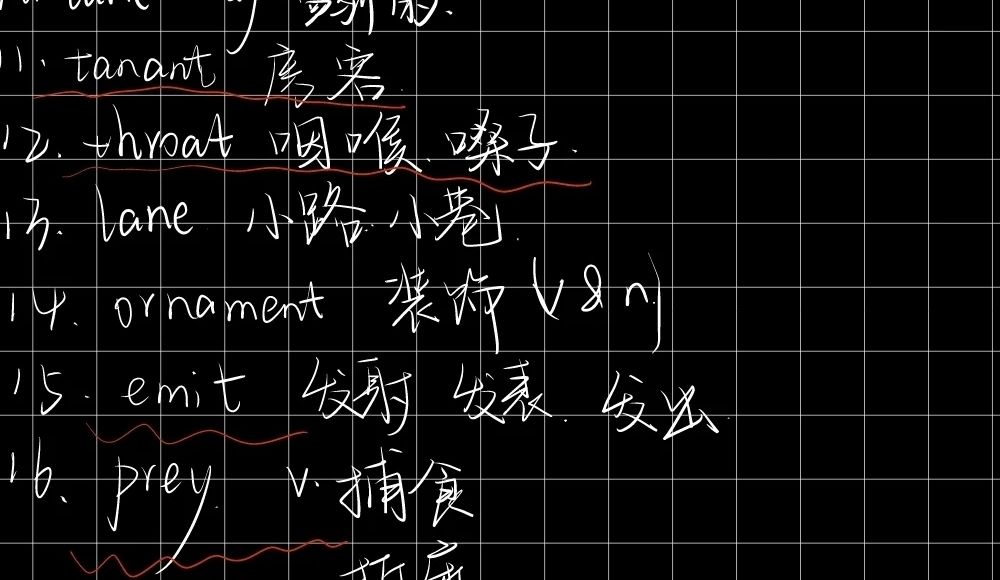 11. tanant 房客.
12. throat 咽喉.嗓子.
13. lane 小路.小巷.
14. ornament 装饰 (v & n)
15. emit 发射 发表.发出.
16. prey v. 捕食